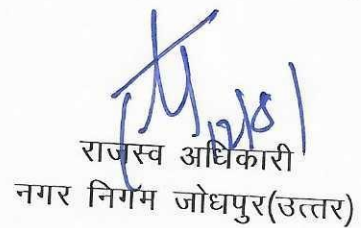 राजस्व अधिकारी
नगर निगम जोधपुर(उत्तर)